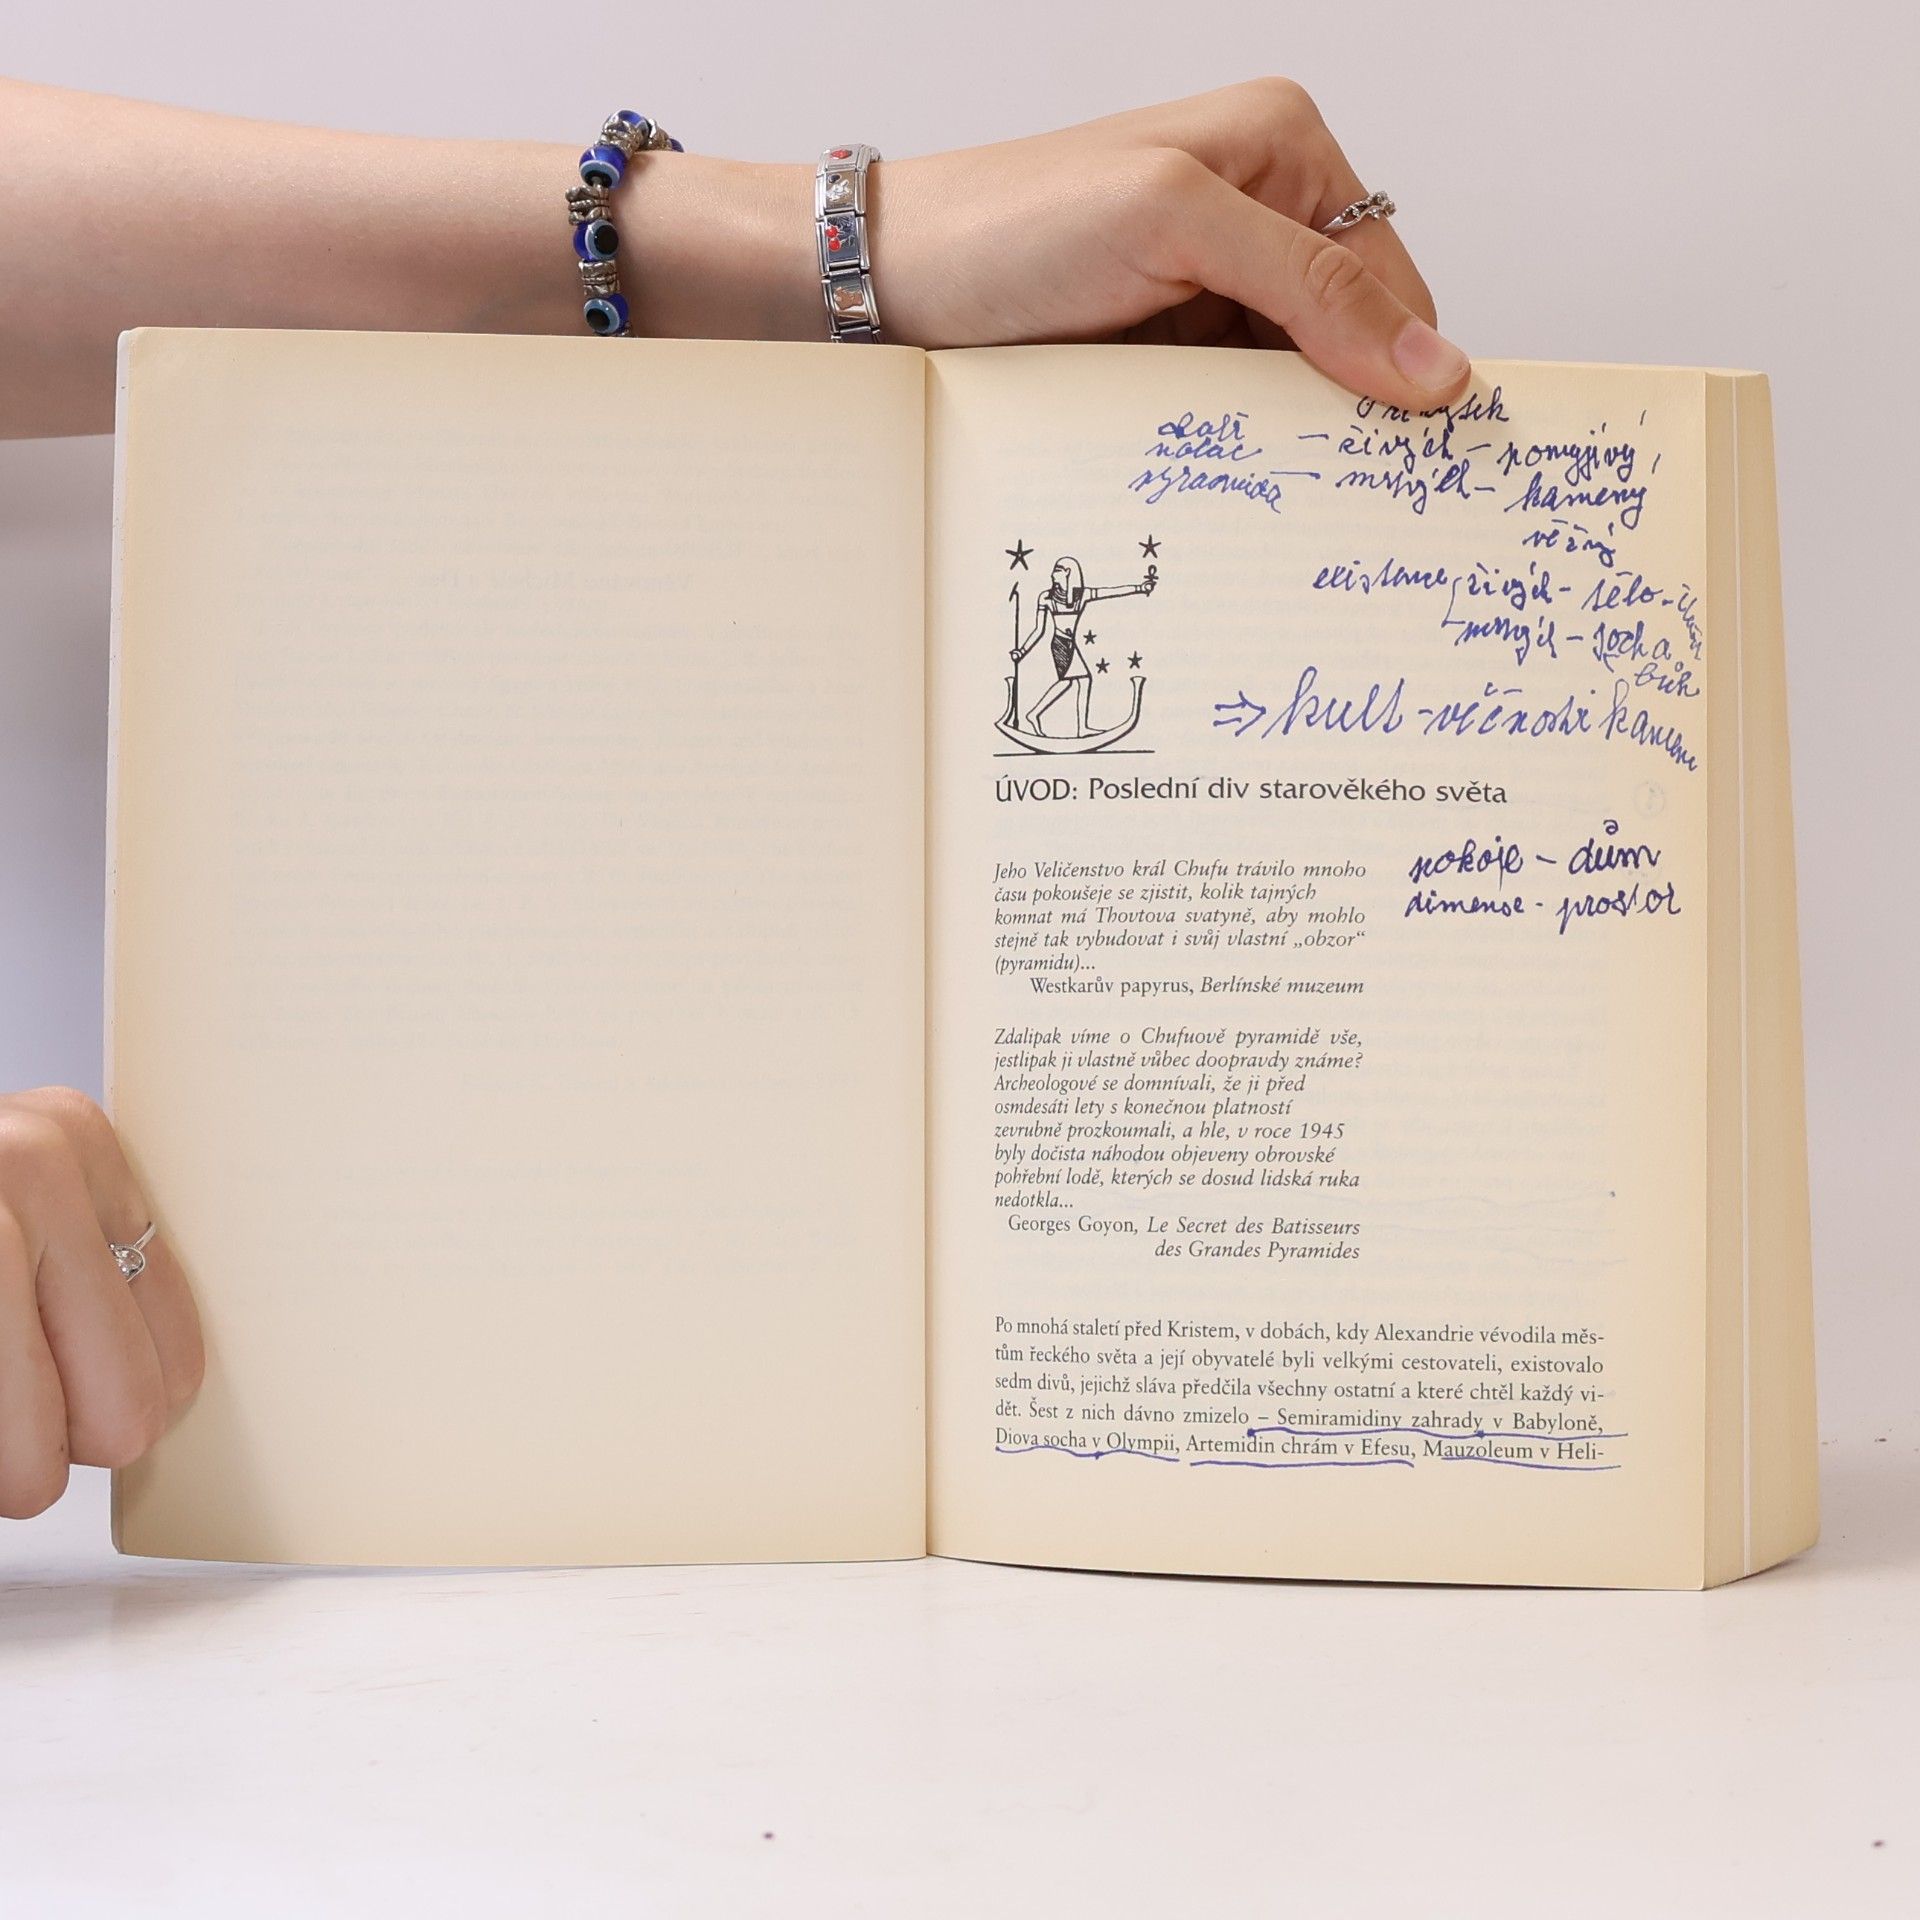 palác — živých — pomíjivý
pyramida — mrtvých — kamený
věčný
existence živých - tělo -
mrtvých - socha
bůh
⇒ kult - věčnosti kamene
ÚVOD: Poslední div starověkého světa
pokoje - dům
dimense - prostor
Jeho Veličenstvo král Chufu trávilo mnoho
času pokoušeje se zjistit, kolik tajných
komnat má Thovtova svatyně, aby mohlo
stejně tak vybudovat i svůj vlastní „obzor“
(pyramidu)...
Westkarův papyrus, Berlínské muzeum
Zdalipak víme o Chufuově pyramidě vše,
jestlipak ji vlastně vůbec doopravdy známe?
Archeologové se domnívali, že ji před
osmdesáti lety s konečnou platností
zevrubně prozkoumali, a hle, v roce 1945
byly dočista náhodou objeveny obrovské
pohřební lodě, kterých se dosud lidská ruka
nedotkla...
Georges Goyon, Le Secret des Batisseurs
des Grandes Pyramides
Po mnohá staletí před Kristem, v dobách, kdy Alexandrie vévodila měs-
tům řeckého světa a její obyvatelé byli velkými cestovateli, existovalo
sedm divů, jejichž sláva předčila všechny ostatní a které chtěl každý vi-
dět. Šest z nich dávno zmizelo – Semiramidiny zahrady v Babyloně,
Diova socha v Olympii, Artemidin chrám v Efesu, Mauzoleum v Heli-